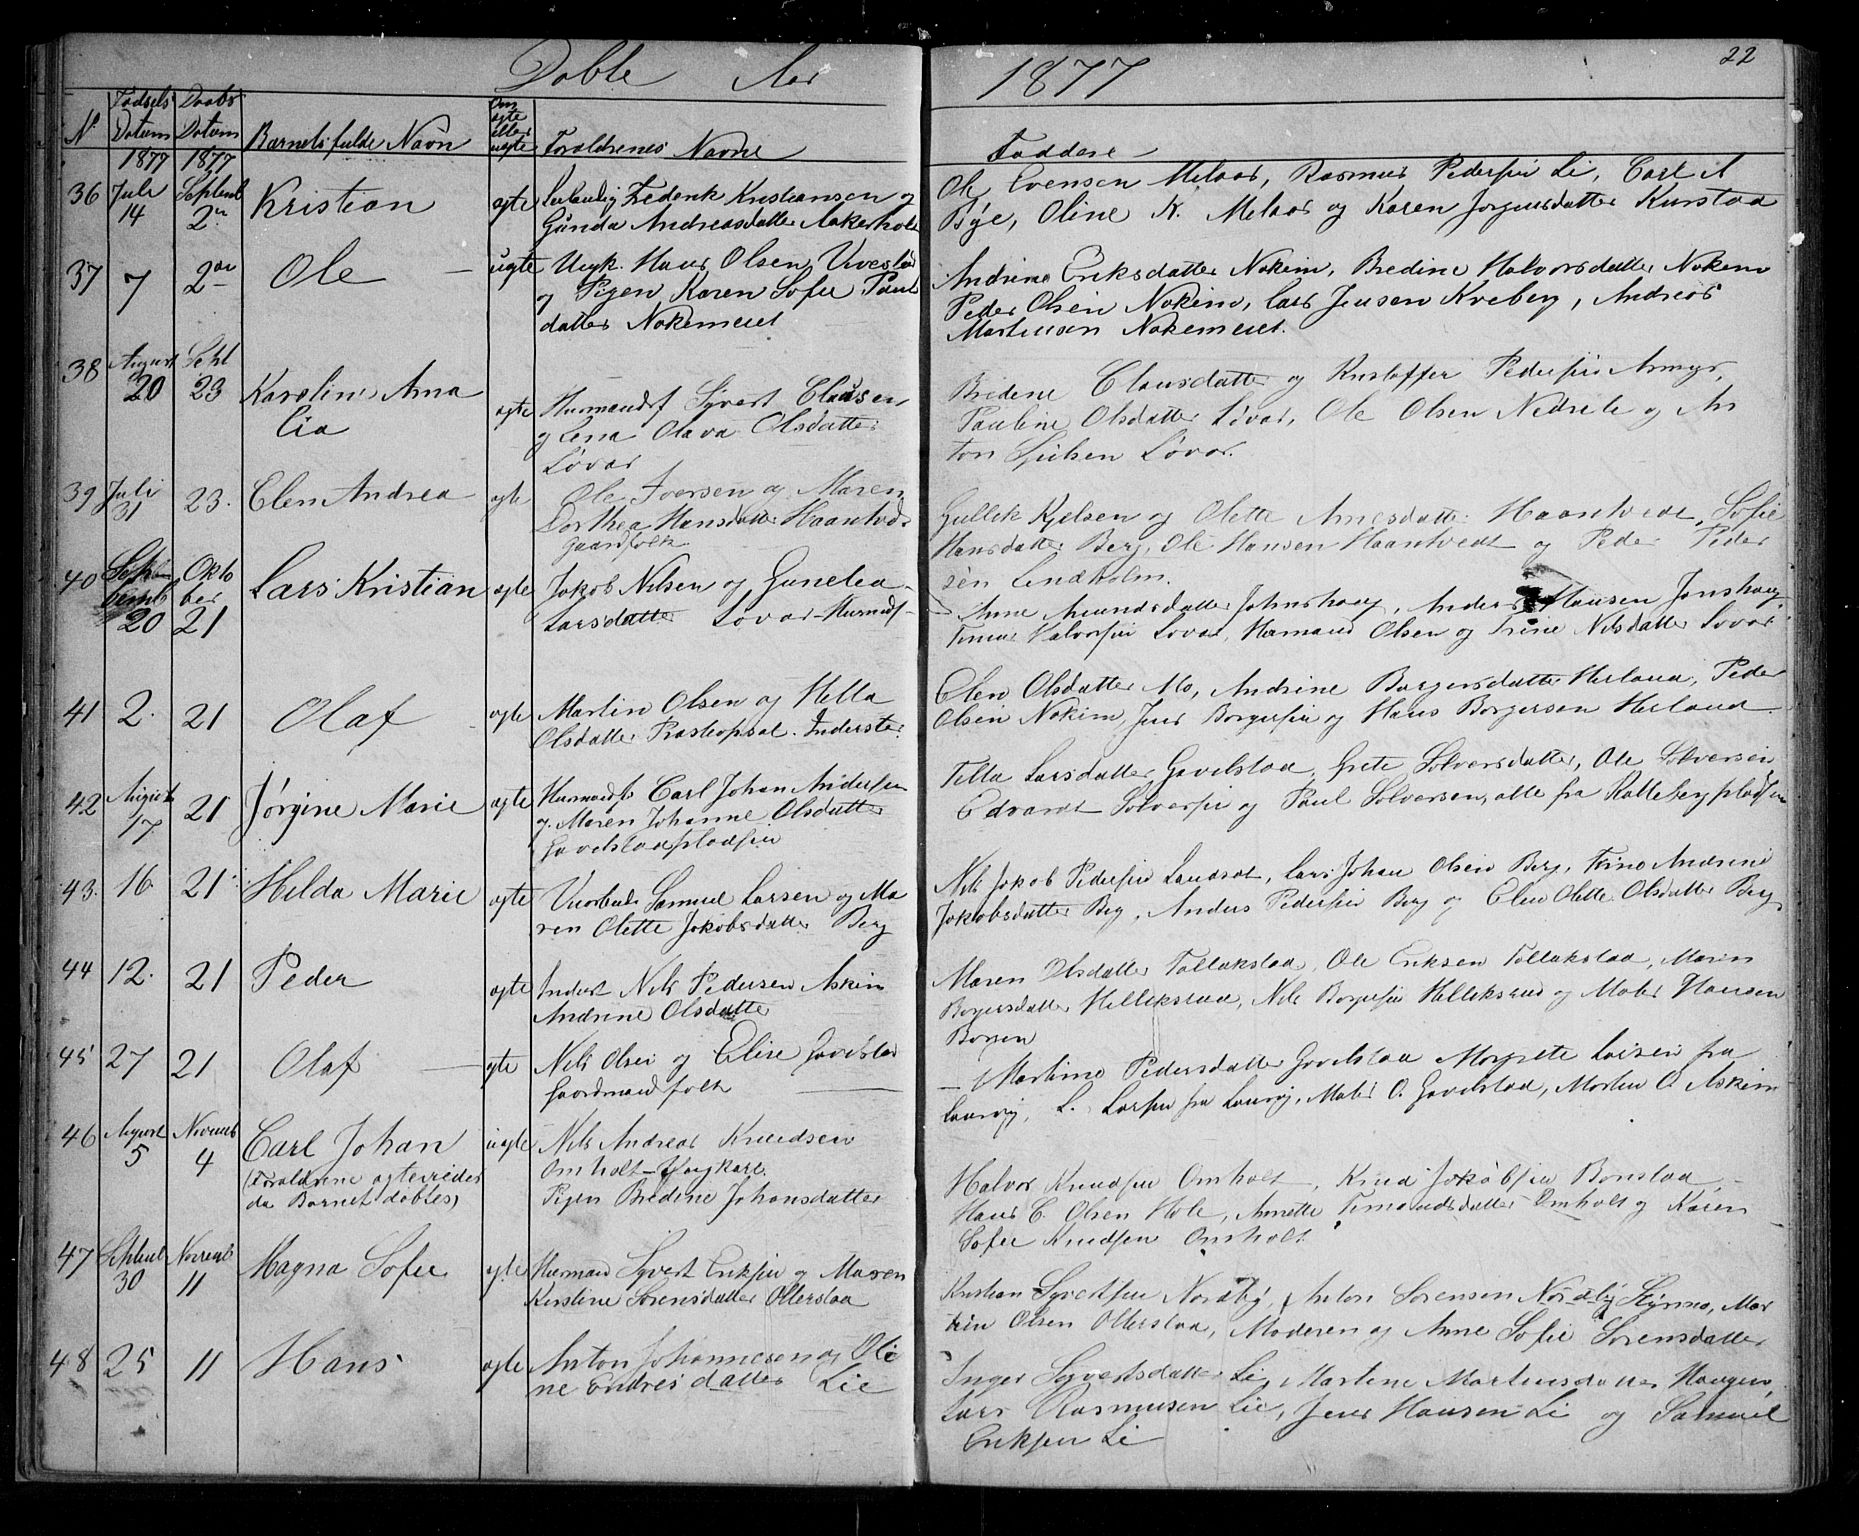 Døbte Aar 1877
22
N. Fødsels Datum Daabs Datum Barnets fulde Navn Om ægte eller uægte Forældrenes Navne Faddere
1877 1877
36 Juli 14 Septemb 2den Kristian ægte Frederik Kristiansen og
Gunda Andreasdatter Aakerholt
Ole Evensen Melaas, Rasmus Pederssen Li, Carl A
Bye, Oline N. Melaas og Karen Jørgensdatter Kurstaa
37 7 2den Ole uægte Ungk. Hans Olsen Vivestad
og Pigen Karen Sofie Pauls
datter Nokemeiet
Andrine Eriksdatter Nokim, Bredine Halvorsdatter Nokim
Peder Olsen Nokim, Lars Jensen Kveberg, Andreas
Martinsen Nokemeiet.
38 August 20 Sept 23 Karoline Ama
lia
ægte Husmandsf Syvert Clausen
og Lena Olava Olsdatter
Løvas
Bredine Clausdatter og Kristoffer Pederssen Asmyr,
Pauline Olsdatter Løvas, Ole Olsen Nedrele og An
ton Løvas.
39 Juli 31 23. Elen Andrea ægte Ole Iversen og Maren
Dorthea Hansdatter Haantveds
Gaardfolk
Gullik Kjelsen og Olette Arnesdatter Haantvedt, Sofie
Hansdatter Berg, Ole Hansen Haantvedt og Peder Peder
sen Lindholm.
40 September 20 Okto
ber 21 Lars Kristian ægte Jakob Nilsen og Gunelea
Larsdatter Løvas Husmdf
Anne Amundsdatter Johnshaug, Anders Hansen Jonshaug,
Halvorssen Løvas, Hermand Olsen og Trine Nilsdatter Løvas
41 2. 21 Olaf ægte Martin Olsen og Hella
Olsdatter Inderster
Elen Olsdatter Mo, Andrine Borgersdatter Herland, Peder
Olsen Nokim, Jens Borgerssen og Hans Borgersen Herland
42 August 17 21 Jørgine Marie ægte Husmandsf. Carl Johan Anderssen
og Maren Johanne Olsdatter
Gavelstadpladsen
Tella Larsdatter Gavelstad, Grete Solversdatter, Ole Solversen
Edvardt Solverssen og Paul Solversen, alle fra Ratteberg pladsen
43. 16. 21 Hilda Marie ægte Samuel Larsen og Ma
ren Olette Jokobsdatter Berg
Nils Jokob Pederssen Sandsdt, Lars Johan Olsen Berg, Trine Andrine
Jokobsdatter Berg, Anders Pederssen Berg og Elen Olette Olsdatter Berg
44 12. 21 Peder ægte Inderst Nils Pedersen Askim
Andrine Olsdatter
Maren Olsdatter Tollakstad, Ole Eriksen Tollakstad, Maren
Borgersdatter Hillekstad, Nils Borgerssen Hillekstad og Matis Hansen
Borgen
45 27 21 Olaf ægte Nils Olsen og Elise Gavelstad
Gaardmandfolk
Martine Pedersdatter Gavelstad Margrete Larsen fra
Laurvig, L. Larsen fra Laurvig, Matis O. Gavelstad, Morten O. Askim
46 August 5 Novemb 4 Carl Johan
(Forældrene ægteviedes
da Barnet døbtes)
uægte Nils Andreas Knudsen
Omholt – Ungkarl.
Pigen Bredine Johansdatter
Halvor Knudssen Omholt, Knud Jokobssen Bonstad,
Hans C. Olsen Hole, Annette Omholt og Karen
Sofie Knudssen Omholt
47 Septemb 30 Novemb 11 Magna Sofie ægte Husmand Syvert Erikssen og Maren
Kirstine Sørensdatter Otterstad
Kristian Syvertssen Nordby, Anton Sørensen Nordby, Mar
tin Olsen Otterstad, Moderen og Anne Sofie Sørensdatter
48 25 11 Hans ægte Anton Johannesen og Oli
ne Endresdatter Lie
Inger Syvertsdatter Li, Martine Martinsdatter Haugen,
Lars Rasmusen Lie, Jens Hansen Li og Samuel
Erikssen Li